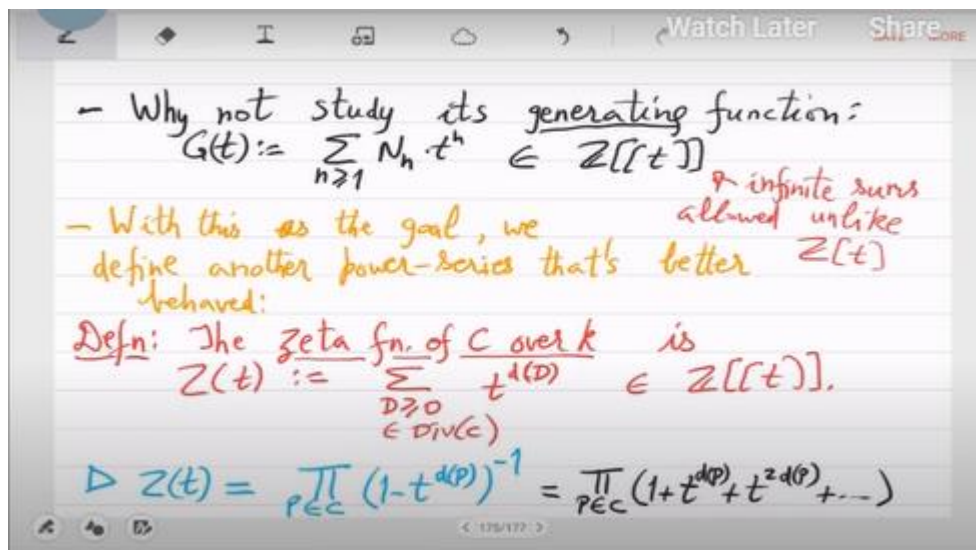 Watch Later Share
MORE
- Why not study its generating function:
G(t) := ∑ Nₙ·tⁿ ∈ ℤ[[t]]
n≥1
↖ infinite sums
allowed unlike
ℤ[t]
- With this as the goal, we
define another power-series that's better
behaved:
Defn: The zeta fn. of C over k is
Z(t) := ∑ t^d(D) ∈ ℤ[[t]].
D≥0
∈ Div(C)
▷ Z(t) = ∏ (1-t^d(P))^-1 = ∏ (1+t^d(P)+t^2d(P)+....)
P∈C P∈C
< 175/177 >